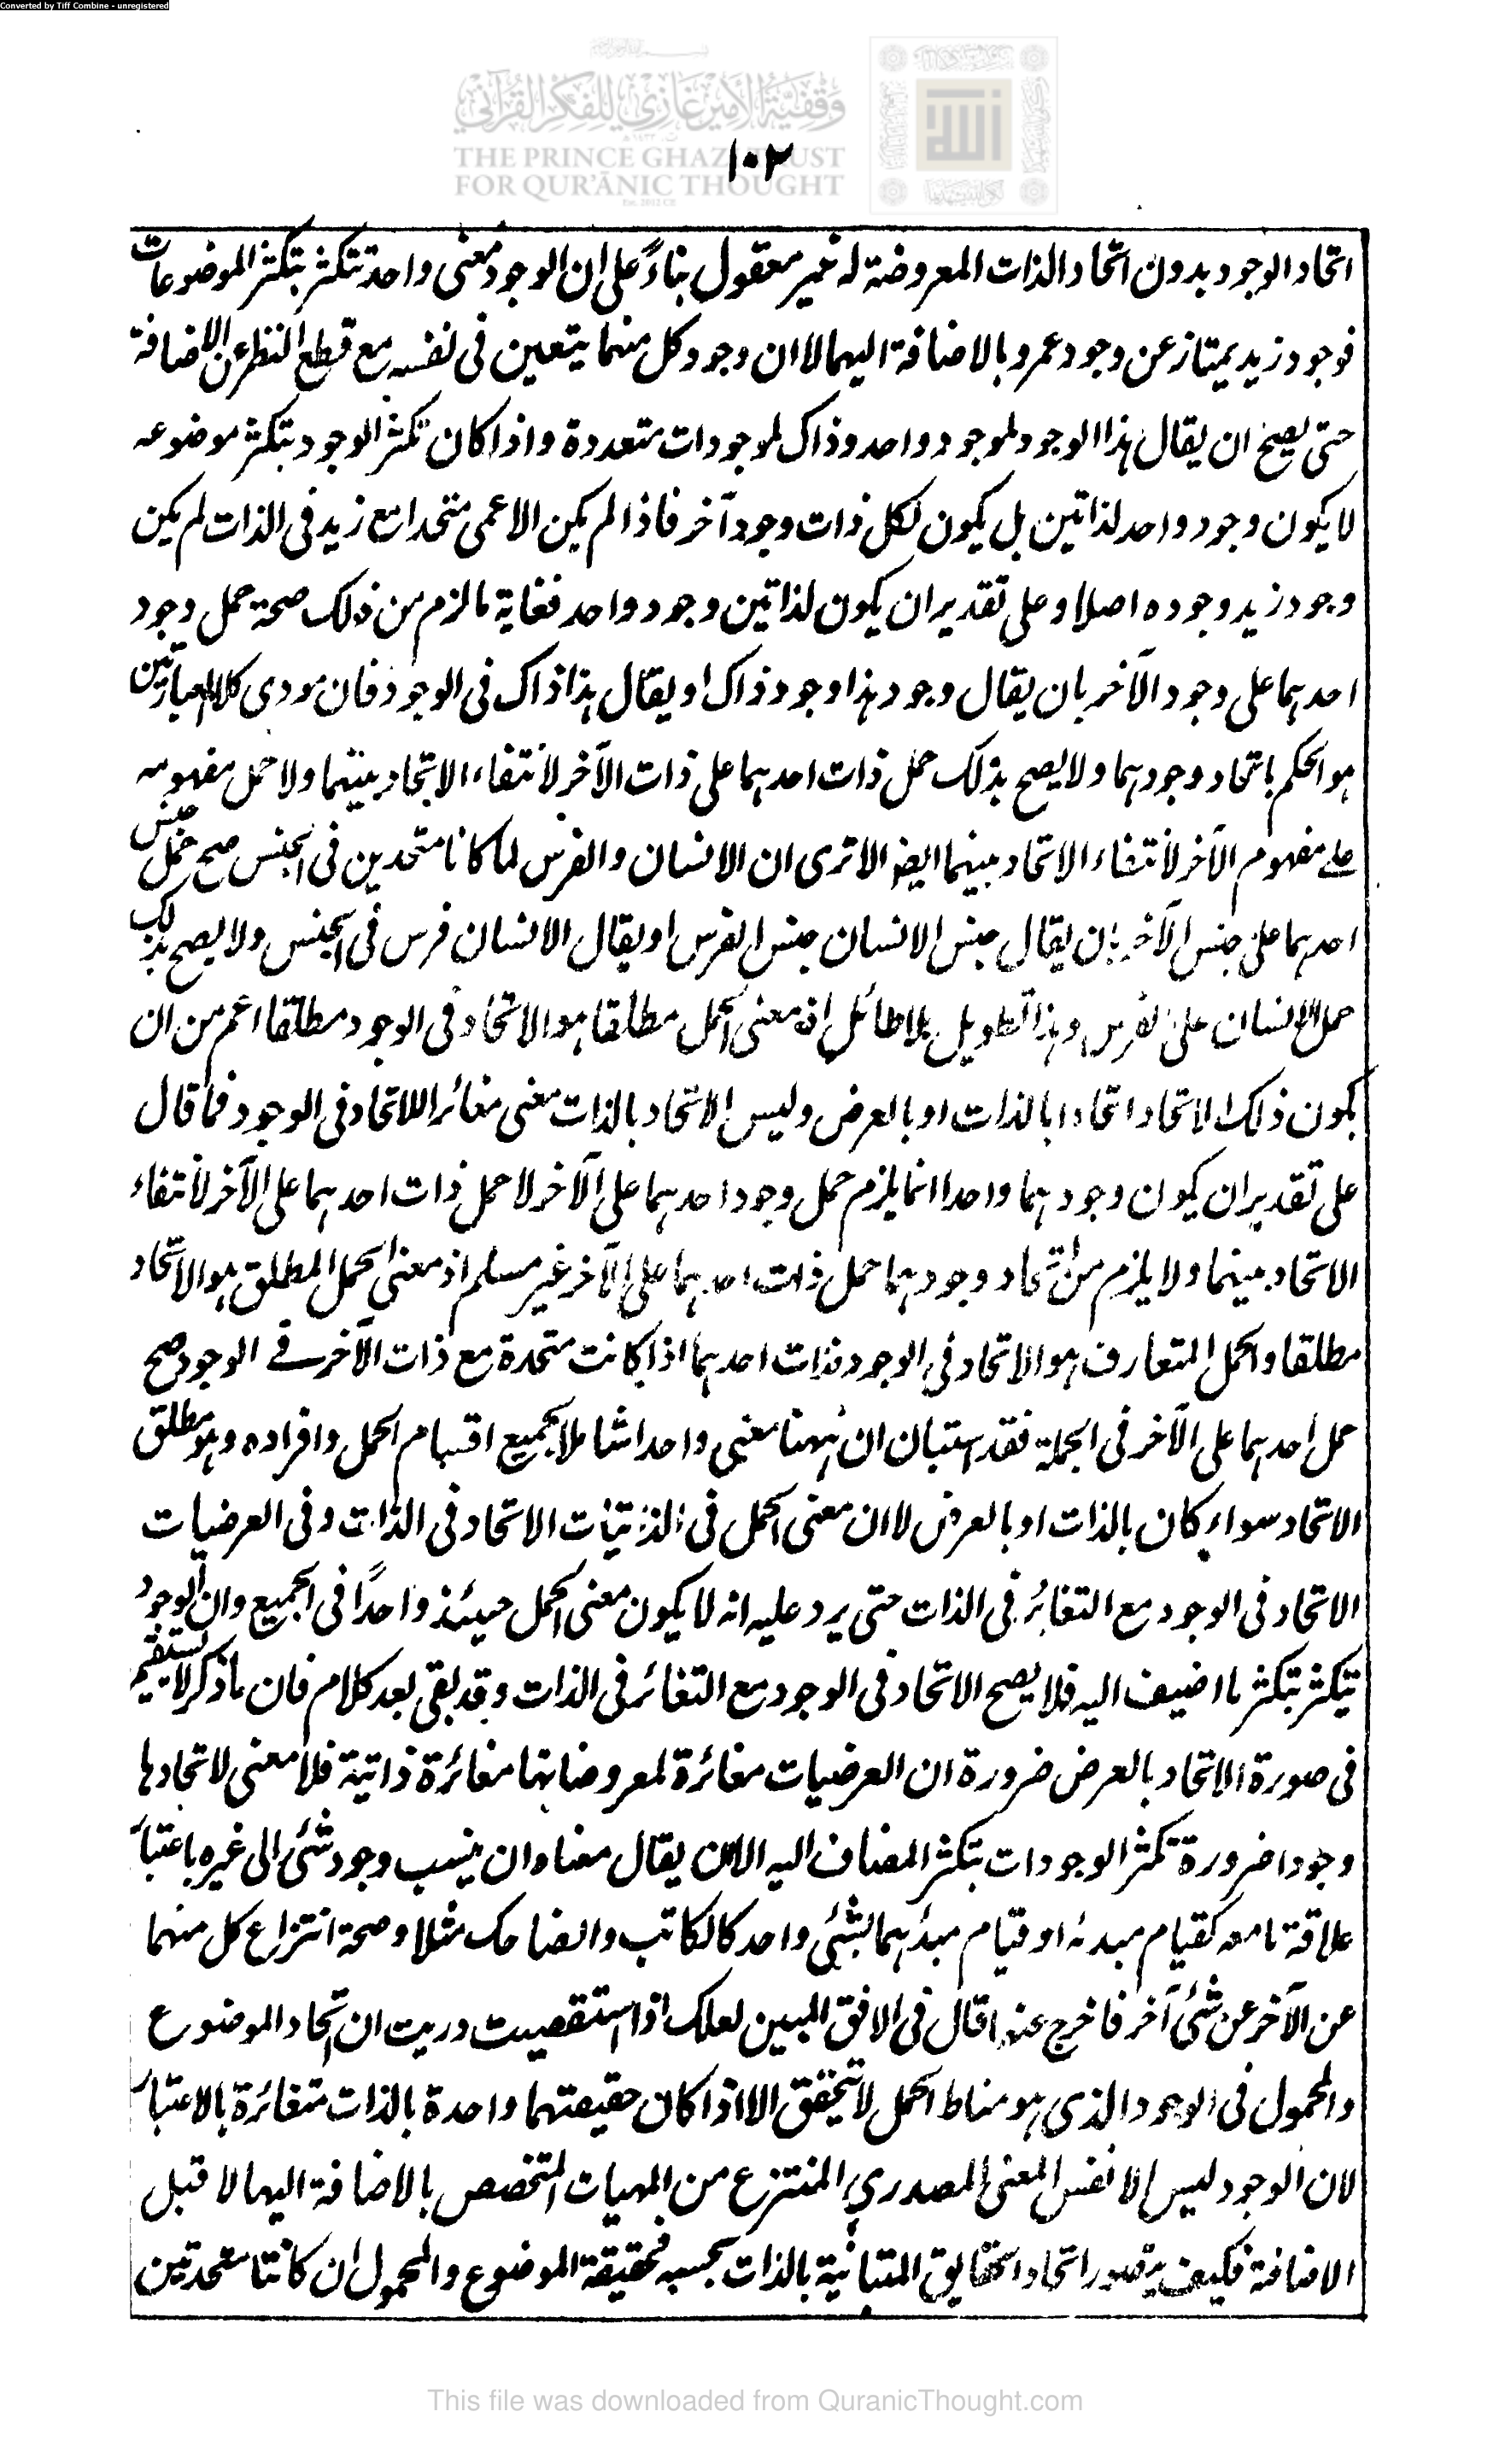 Converted by Tiff Combine - unregistered
وقفية الأمير غازي للفكر القرآني
THE PRINCE GHAZI TRUST
FOR QUR'ĀNIC THOUGHT
١٠٢
اتحاد الوجود بدون اتحاد الذات المعروضة له غير معقول بناءً على ان الوجود معنى واحد تتكثر بتكثر الموضوعات
فوجود زيد يمتاز عن وجود عمرو بالاضافة اليهما لا ان وجود كل منهما يتعين فى نفسه مع قطع النظر عن الاضافة
حتى يصح ان يقال هذا الوجود لموجود واحد وذاك لموجودات متعددة واذا كان تكثر الوجود بتكثر موضوعه
لا يكون وجود واحد لذاتين بل يكون لكل ذات وجود آخر فاذا لم يكن الاعمى متحدا مع زيد فى الذات لم يكن
وجود زيد وجوده اصلا وعلى تقدير ان يكون لذاتين وجود واحد فغاية ما لزم من ذلك صحة حمل وجود
احدهما على وجود الآخر بان يقال وجود هذا وجود ذاك او يقال هذا ذاك فى الوجود فان مودى كلا العبارتين
هو الحكم باتحاد وجودهما ولا يصح بذلك حمل ذات احدهما على ذات الآخر لانتفاء الاتحاد بينهما ولا حمل مفهومه
على مفهوم الآخر لانتفاء الاتحاد بينهما ايضا الا ترى ان الانسان والفرس لما كانا متحدين فى الجنس صح حمل جنس
احدهما على جنس الآخر بان يقال جنس الانسان جنس الفرس او يقال الانسان فرس فى الجنس ولا يصح بذلك
حمل الانسان على الفرس وهذا تطويل بلا طائل اذ معنى الحمل مطلقا هو الاتحاد فى الوجود مطلقا اعم من ان
يكون ذلك الاتحاد اتحادا بالذات او بالعرض وليس الاتحاد بالذات معنى مغائرا للاتحاد فى الوجود فما قال
على تقدير ان يكون وجودهما واحدا انما يلزم حمل وجود احدهما على الآخر لا حمل ذات احدهما على الآخر لانتفاء
الاتحاد بينهما ولا يلزم من اتحاد وجودهما حمل ذات احدهما على الآخر غير مسلم اذ معنى الحمل المطلق هو الاتحاد
مطلقا والحمل المتعارف هو الاتحاد فى الوجود فذات احدهما اذا كانت متحدة مع ذات الآخر فى الوجود صح
حمل احدهما على الآخر فى الجملة فقد استبان ان ههنا معنى واحدا شاملا لجميع اقسام الحمل وافراده وهو مطلق
الاتحاد سواء كان بالذات او بالعرض لا ان معنى الحمل فى الذاتيات الاتحاد فى الذات وفى العرضيات
الاتحاد فى الوجود مع التغائر فى الذات حتى يرد عليه انه لا يكون معنى الحمل حينئذ واحدًا فى الجميع وان الوجود
يتكثر بتكثر ما اضيف اليه فلا يصح الاتحاد فى الوجود مع التغائر فى الذات وقد بقى بعد كلام فان ما ذكر لا يستقيم
فى صورة الاتحاد بالعرض ضرورة ان العرضيات مغائرة لمعروضاتها مغائرة ذاتية فلا معنى لاتحادها
وجودا ضرورة تكثر الوجودات بتكثر المضاف اليه الا ان يقال معناه ان ينسب وجود شئى الى غيره باعتبار
علاقة ما معه كقيام مبدئه او قيام مبدئهما بشئى واحد كالكاتب والضاحك مثلا وصحة انتزاع كل منهما
عن الآخر عن شئى آخر فاخرج عنه ما قال فى الافق المبين لعلك اذا استقصيت دريت ان اتحاد الموضوع
والمحمول فى الوجود الذى هو مناط الحمل لا يتحقق الا اذا كان حقيقتهما واحدة بالذات متغائرة بالاعتبار
لان الوجود ليس الا نفس المعنى المصدرى المنتزع من المهيات المتخصص بالاضافة اليها لا قبل
الاضافة فكيف يتصور اتحاد الحقايق المتبائنية بالذات بحسبه فحقيقة الموضوع والمحمول ان كانتا متحدتين
This file was downloaded from QuranicThought.com